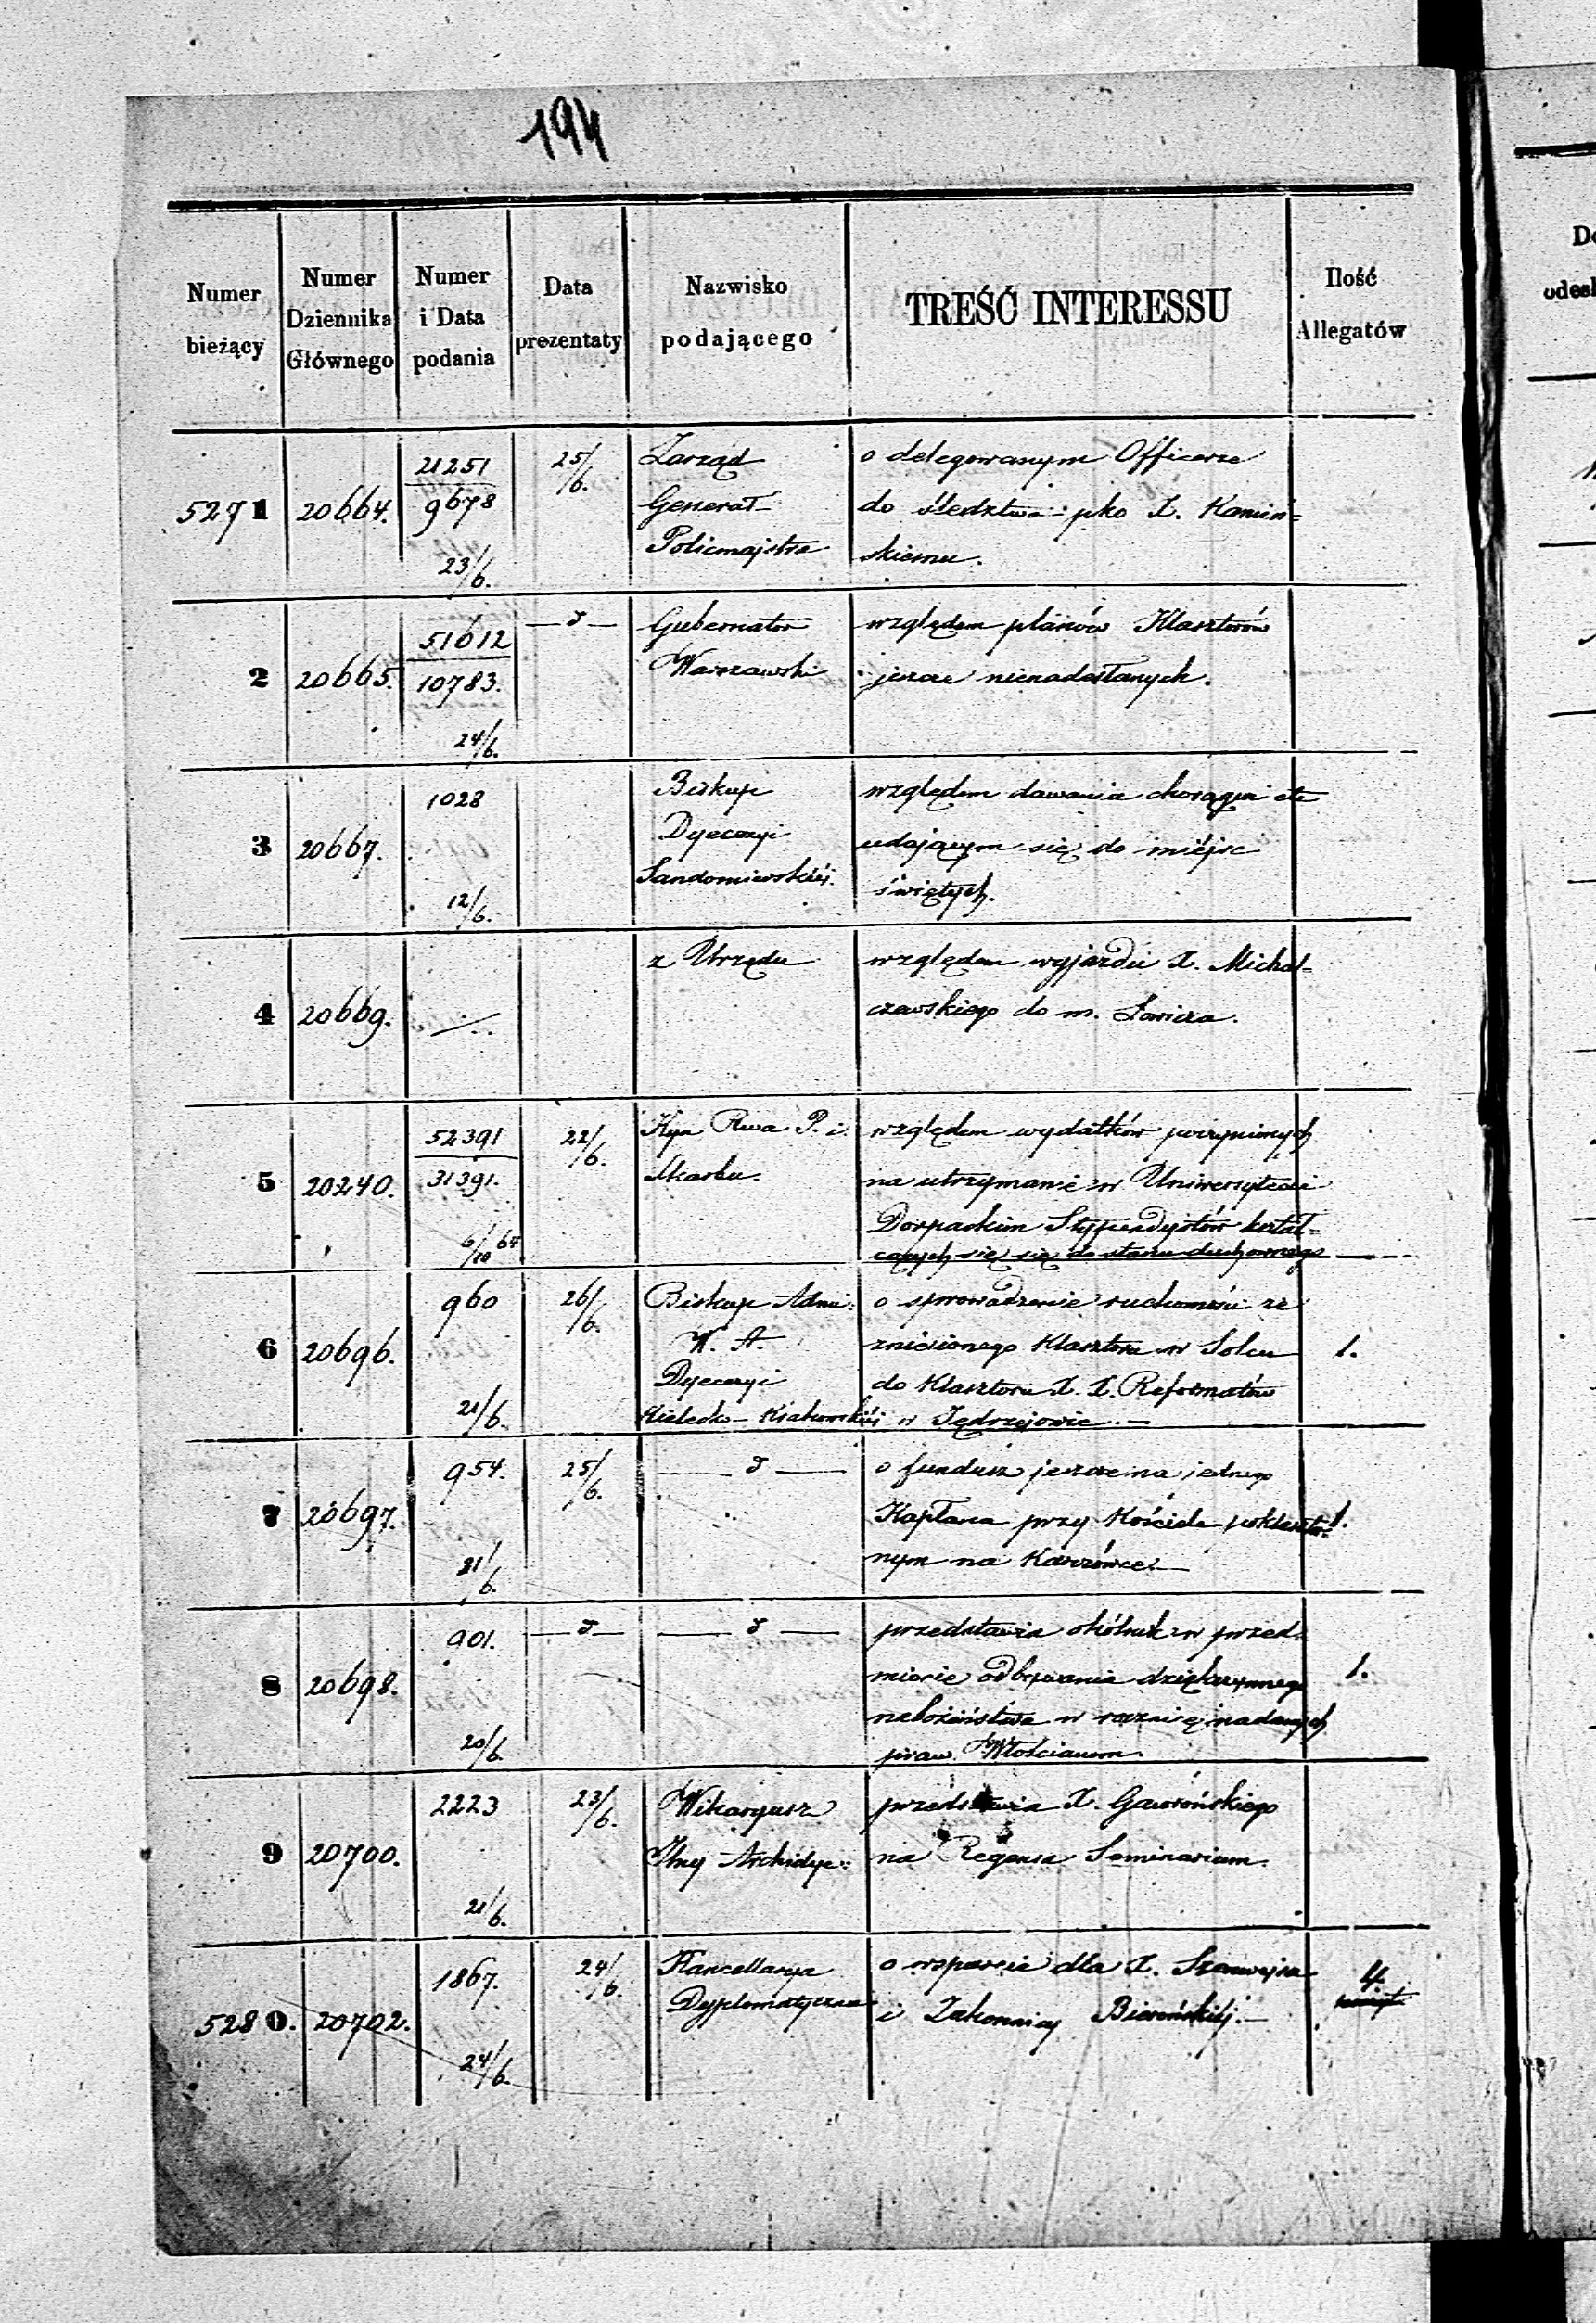 194
Numer bieżący
Numer Dziennika Głównego
Numer i Data podania
Data prezentaty
Nazwisko podającego
TREŚĆ INTERESSU
Ilość Allegatów
5271 20664. 21251 25/6. Zarząd o delegowanym Officerze
9678 Generał- do śledztwa pko X. Kamiń=
23/6. Policmajstra skiemu.
2 20665. 51012 — d — Gubernator względem planów Klasztorów
10783. Warszawski jeszcze nienadesłanych.
24/6.
3 20667. 1028 Biskup względem dawania chorągwi etc
Dyecezyi udającym się do miéjsc
12/6. Sandomierskiéj. świętych.
4 20669. z Urzędu względem wyjazdu X. Michal=
czewskiego do m. Łowicza.
5 20240. 52391 22/6. Kya Rwa P. i względem wydatków poczynionych
31391. Skarbu. na utrzymanie w Uniwersytecie
Dorpackim Stypendystów kształ-
6/10 64 cących się się do stanu duchownego
6 20696. 960 26/6. Biskup Admi: o sprowadzenie ruchomości ze
W. A. zniesionego Klasztoru w Solcu 1.
Dyecezyi do Klasztoru X. X. Reformatów
21/6. Kielecko-Krakowskiéj w Jędrzejowie.—
7 20697. 954. 25/6. — d — o fundusz jeszcze na jednego
Kapłana przy Kościele poklasztor- 1.
21/6. nym na Karczówce.—
8 20698. 901. — d — — d — przedstawia okólnik w przed-
miocie odbywania dziękczynnego 1.
nabożeństwa w rocznicę nadanych
20/6. praw Włościanom.
9 20700. 2223 23/6. Wikaryusz przedstawia X. Gawrońskiego
Jlny Archidye: na Regensa Seminarium.
21/6.
5280. 20702. 1867. 24/6. Kancellarya o wsparcie dla X. 4
Dyplomatyczna i Zakonnicy
24/6.